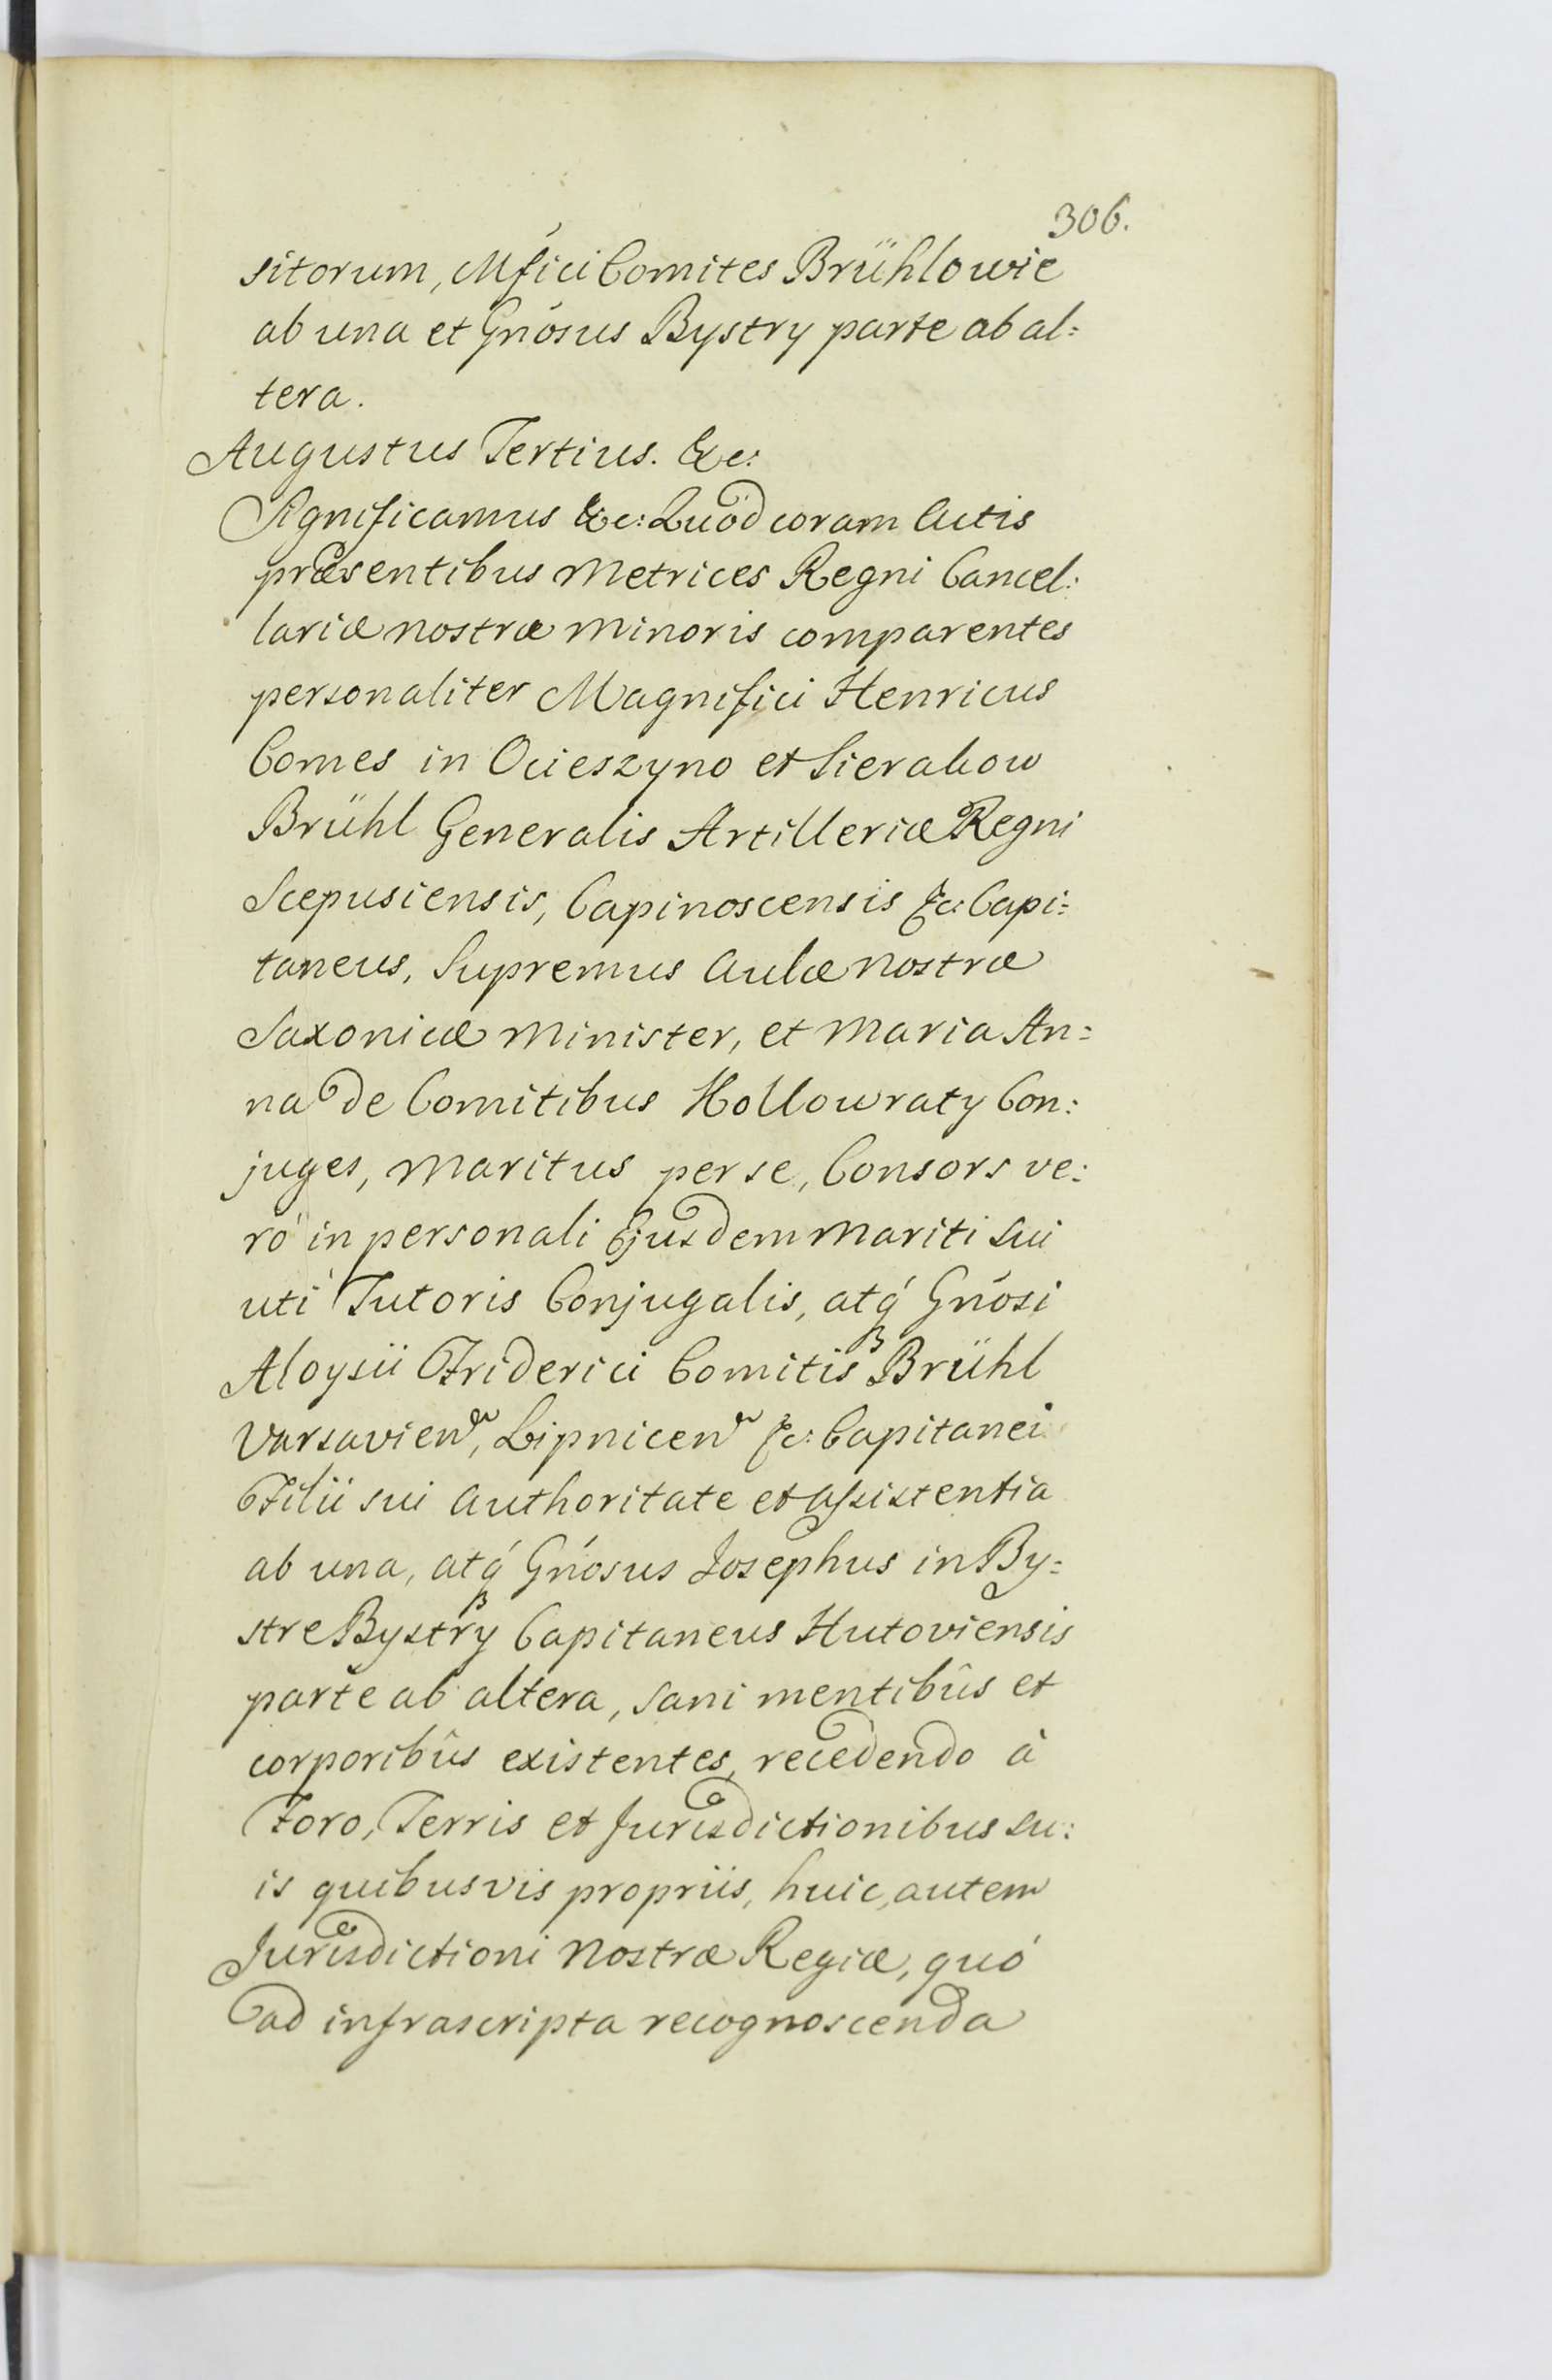 306.
sitorum, Mfici Comites Brühlowie
ab una et Gnosus Bystry parte ab al=
tera.
Augustus Tertius. &c:
Significamus &c: Quod coram Actis
præsentibus Metrices Regni Cancel:
lariæ nostræ minoris comparentes
personaliter Magnifici Henricus
Comes in Ocieszyno et Sierakow
Brühl Generalis Artilleriæ Regni
Scepusiensis, Capinoscensis &c: Capi=
taneus, Supremus Aulæ nostræ
Saxonicæ Minister, et Maria An=
na de Comitibus Kollowraty Con:
juges, Maritus per se, Consors ve:
rò in personali Ejusdem Mariti sui
uti Tutoris Conjugalis, atq́ Gnosi
Aloysii Friderici Comitis Brühl
Varsavien, Lipnicen &c: Capitanei
Filii sui Authoritate et Assistentia
ab una, atq́ Gnosus Josephus in By=
stre Bystry Capitaneus Hutoviensis
parte ab altera, sani mentibûs et
corporibûs existentes, recedendo à
Foro, Terris et Jurisdictionibus su:
is quibusvis propriis, huic, autem
Jurisdictioni Nostræ Regiæ, quó
ad infrascripta recognoscenda